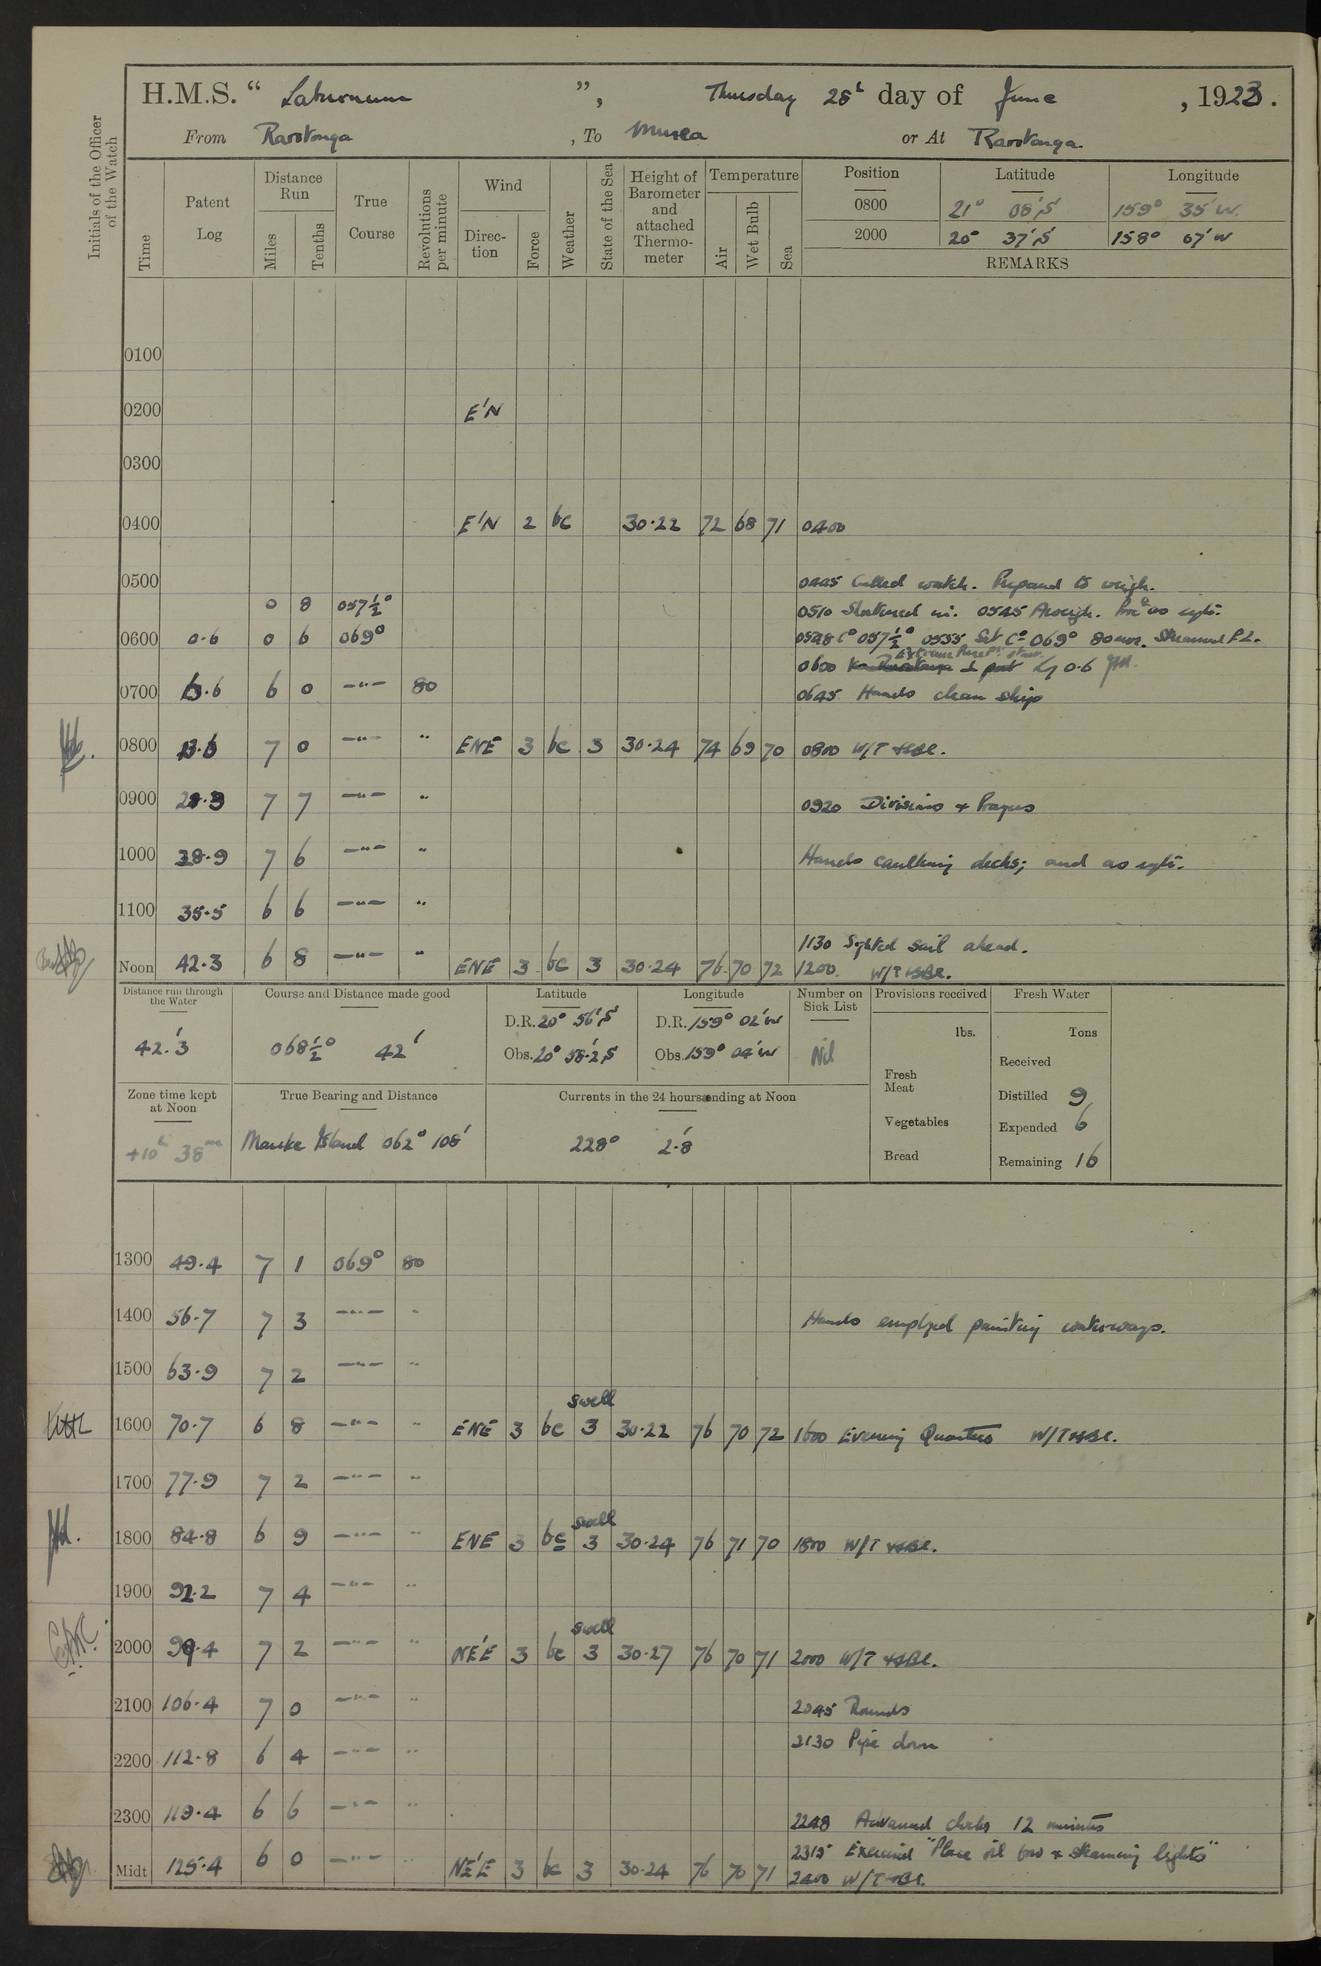 H.M.S. “ Laburnum ”, Thursday 28th day of June, 1923.
From Rarotonga, To Murea or At Rarotonga
Initials of the Officer of the Watch
Time
Patent Log
Distance Run
Miles
Tenths
True Course
Revolutions per minute
Wind
Direction
Force
Weather
State of the Sea
Height of Barometer and attached Thermometer
Temperature
Air
Wet Bulb
Sea
Position Latitude Longitude
0800 21° 08'S 159° 35'W.
2000 20° 37'S 158° 07'W
REMARKS
0100
0200 E'N
0300
0400 E'N 2 bc 30.22 72 68 71 0400
0500
0445 Called watch. Prepared to weigh.
0 8 057½°
0510 Shortened in. 0545 Aweigh. Proc. as req.
0600 0.6 0 6 069° 0548 Co 057½° 0555 Set Co 069° 80 revs. Streamed P.L.
0600 Lg 0.6
0700 6.6 6 0 —"— 80 0645 Hands clean ship
0800 13.6 7 0 —"— " ENE 3 bc 3 30.24 74 69 70 0800 W/T
0900 21.3 7 7 —"— "
0920 Divisions & Prayers
1000 28.9 7 6 —"— " Hands caulking decks; and as
1100 35.5 6 6 —"— "
1130 Sighted sail ahead.
Noon 42.3 6 8 —"— " ENE 3 bc 3 30.24 76 70 72 1200. W/T
Distance run through the Water
42.3'
Course and Distance made good
068½° 42'
Latitude
D.R. 20° 56'S
Obs. 20° 58.2'S
Longitude
D.R. 159° 02'W
Obs. 159° 04'W
Number on Sick List
Nil
Provisions received
lbs.
Fresh Meat
Vegetables
Bread
Fresh Water
Tons
Received
Distilled 9
Expended 6
Remaining 16
Zone time kept at Noon
+10h 38m
True Bearing and Distance
Mauke Island 062° 108'
Currents in the 24 hours ending at Noon
228° 2.8'
1300 49.4 7 1 069° 80
1400 56.7 7 3 —"— " Hands employed painting waterways.
1500 63.9 7 2 —"— "
swell
1600 70.7 6 8 —"— " ENE 3 bc 3 30.22 76 70 72 1600 Evening Quarters W/T
1700 77.9 7 2 —"— "
swell
1800 84.8 6 9 —"— " ENE 3 bc 3 30.24 76 71 70 1800 W/T
1900 92.2 7 4 —"— "
swell
2000 99.4 7 2 —"— " NE'E 3 bc 3 30.27 76 70 71 2000 W/T
2100 106.4 7 0 —"— " 2045 Rounds
2130 Pipe down
2200 112.8 6 4 —"— "
2300 119.4 6 6 —"— " 2248 Advanced clocks 12 minutes
2315 Exercised "Place oil bow & steaming lights"
Midt 125.4 6 0 —"— " NE'E 3 bc 3 30.24 76 70 71 2400 W/T